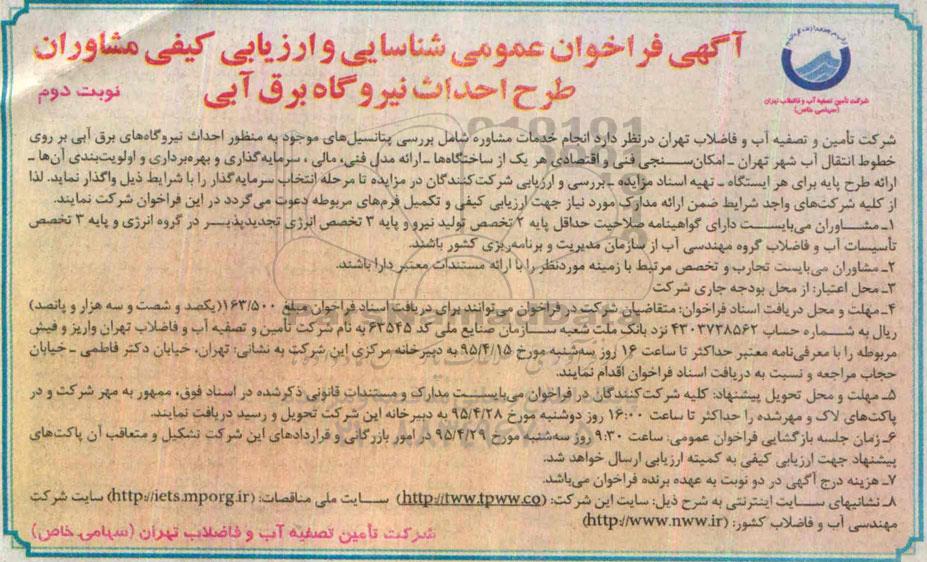 آگهی فراخوان عمومی شناسایی و ارزیابی کیفی مشاوران
طرح احداث نیروگاه برق آبی
نوبت دوم
شرکت تأمین تصفیه آب و فاضلاب تهران
(سهامی خاص)
شرکت تأمین و تصفیه آب و فاضلاب تهران درنظر دارد انجام خدمات مشاوره شامل بررسی پتانسیل‌های موجود به منظور احداث نیروگاه‌های برق آبی بر روی
خطوط انتقال آب شهر تهران ـ امکان‌سنجی فنی و اقتصادی هر یک از ساختگاه‌ها ـ ارائه مدل فنی، مالی ، سرمایه‌گذاری و بهره‌برداری و اولویت‌بندی آن‌ها ـ
ارائه طرح پایه برای هر ایستگاه ـ تهیه اسناد مزایده ـ بررسی و ارزیابی شرکت‌کنندگان در مزایده تا مرحله انتخاب سرمایه‌گذار را با شرایط ذیل واگذار نماید. لذا
از کلیه شرکت‌های واجد شرایط ضمن ارائه مدارک مورد نیاز جهت ارزیابی کیفی و تکمیل فرم‌های مربوطه دعوت می‌گردد در این فراخوان شرکت نمایند.
۱ـ مشاوران می‌بایست دارای گواهینامه صلاحیت حداقل پایه ۲ تخصص تولید نیرو و پایه ۳ تخصص انرژی تجدیدپذیر در گروه انرژی و پایه ۳ تخصص
تأسیسات آب و فاضلاب گروه مهندسی آب از سازمان مدیریت و برنامه‌ریزی کشور باشند.
۲ـ مشاوران می‌بایست تجارب و تخصص مرتبط با زمینه موردنظر را با ارائه مستندات معتبر دارا باشند.
۳ـ محل اعتبار: از محل بودجه جاری شرکت
۴ـ مهلت و محل دریافت اسناد فراخوان: متقاضیان شرکت در فراخوان می‌توانند برای دریافت اسناد فراخوان مبلغ ۱۶۳/۵۰۰(یکصد و شصت و سه هزار و پانصد)
ریال به شماره حساب ۴۳۰۳۷۳۸۵۶۲ نزد بانک ملت شعبه سازمان صنایع ملی کد ۶۳۵۴۵ به نام شرکت تأمین و تصفیه آب و فاضلاب تهران واریز و فیش
مربوطه را با معرفی‌نامه معتبر حداکثر تا ساعت ۱۶ روز سه‌شنبه مورخ ۹۵/۴/۱۵ به دبیرخانه مرکزی این شرکت به نشانی: تهران، خیابان دکتر فاطمی ـ خیابان
حجاب مراجعه و نسبت به دریافت اسناد فراخوان اقدام نمایند.
۵ـ مهلت و محل تحویل پیشنهاد: کلیه شرکت‌کنندگان در فراخوان می‌بایست مدارک و مستندات قانونی ذکرشده در اسناد فوق، ممهور به مهر شرکت و در
پاکت‌های لاک و مهرشده را حداکثر تا ساعت ۱۶:۰۰ روز دوشنبه مورخ ۹۵/۴/۲۸ به دبیرخانه این شرکت تحویل و رسید دریافت نمایند.
۶ـ زمان جلسه بازگشایی فراخوان عمومی: ساعت ۹:۳۰ روز سه‌شنبه مورخ ۹۵/۴/۲۹ در امور بازرگانی و قراردادهای این شرکت تشکیل و متعاقب آن پاکت‌های
پیشنهاد جهت ارزیابی کیفی به کمیته ارزیابی ارسال خواهد شد.
۷ـ هزینه درج آگهی در دو نوبت به عهده برنده فراخوان می‌باشد.
۸ـ نشانیهای سایت اینترنتی به شرح ذیل: سایت این شرکت: (http://tww.tpww.co) سایت ملی مناقصات: (http://iets.mporg.ir) سایت شرکت
مهندسی آب و فاضلاب کشور: (http://www.nww.ir)
شرکت تأمین تصفیه آب و فاضلاب تهران (سهامی خاص)